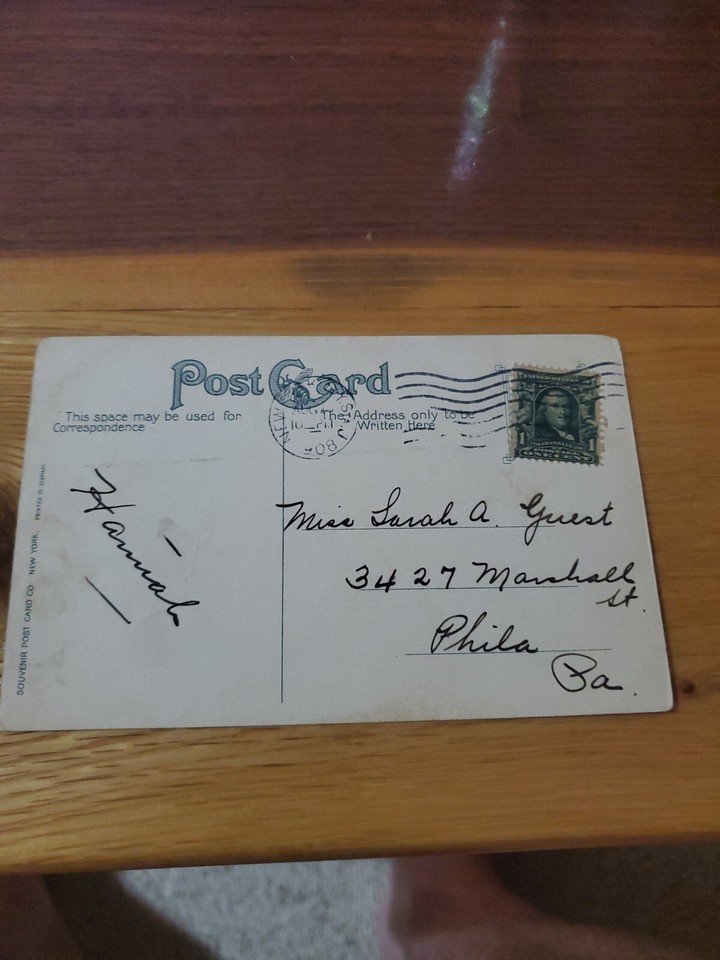 Post Card
This space may be used for
Correspondence
The Address only to be
Written Here
NEW
08
UNITED STATES
1
FRANKLIN
Hannah
Miss Sarah A. Guest
3427 Marshall
St.
Phila
Pa.
SOUVENIR POST CARD CO. NEW YORK.